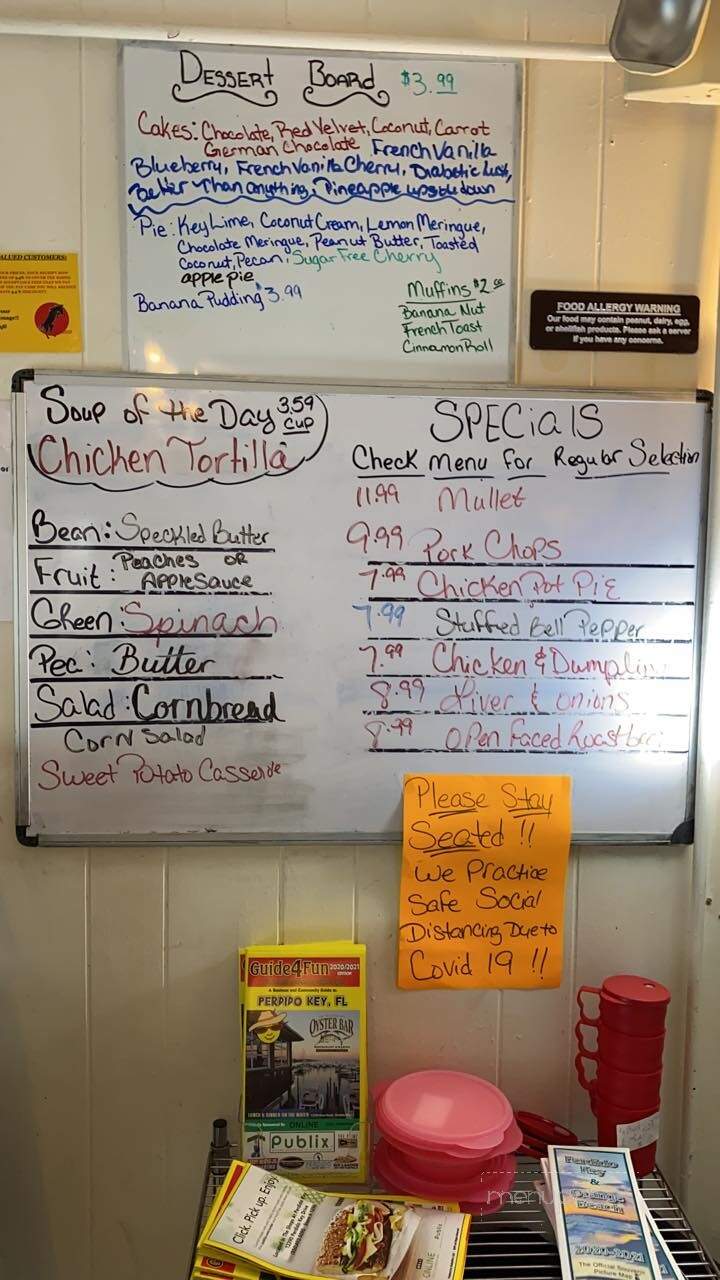 DESSERT BOARD $3.99
Cakes: Chocolate, Red Velvet, Coconut, Carrot
German Chocolate French Vanilla
Blueberry, French Vanilla Cherry, Diabetic Lush,
Better Than anything, Pineapple upside down
Pie: Key Lime, Coconut Cream, Lemon Meringue,
Chocolate Meringue, Peanut Butter, Toasted
Coconut, Pecan, Sugar Free Cherry
apple pie
Banana Pudding $3.99
Muffins $2.
Banana Nut
French Toast
Cinnamon Roll
VALUED CUSTOMERS:
FOOD ALLERGY WARNING
Our food may contain peanut, dairy, egg,
or shellfish products. Please ask a server
if you have any concerns.
Soup of the Day 3.59 cup
Chicken Tortilla
Bean: Speckled Butter
Fruit: Peaches or AppleSauce
Green: Spinach
Pea: Butter
Salad: Cornbread
Corn Salad
Sweet Potato Casserole
SPECiaLS
Check Menu For Regular Selection
11.99 Mullet
9.99 Pork Chops
7.99 Chicken Pot Pie
7.99 Stuffed Bell Pepper
7.99 Chicken & Dumplin
8.99 Liver & onions
8.99 Open Faced Roast
Please Stay
Seated !!
We Practice
Safe Social
Distancing Due to
Covid 19 !!
Guide4Fun 2020/2021 EDITION
A Business and Community Guide to
PERDIDO KEY, FL
OYSTER BAR
LUNCH & DINNER ON THE WATER
ONLINE
Publix
Click. Pick up. Enjoy.
ONLINE
Perdido Key
&
Orange Beach
2020-2021
The Official Souvenir
Picture Map
menu